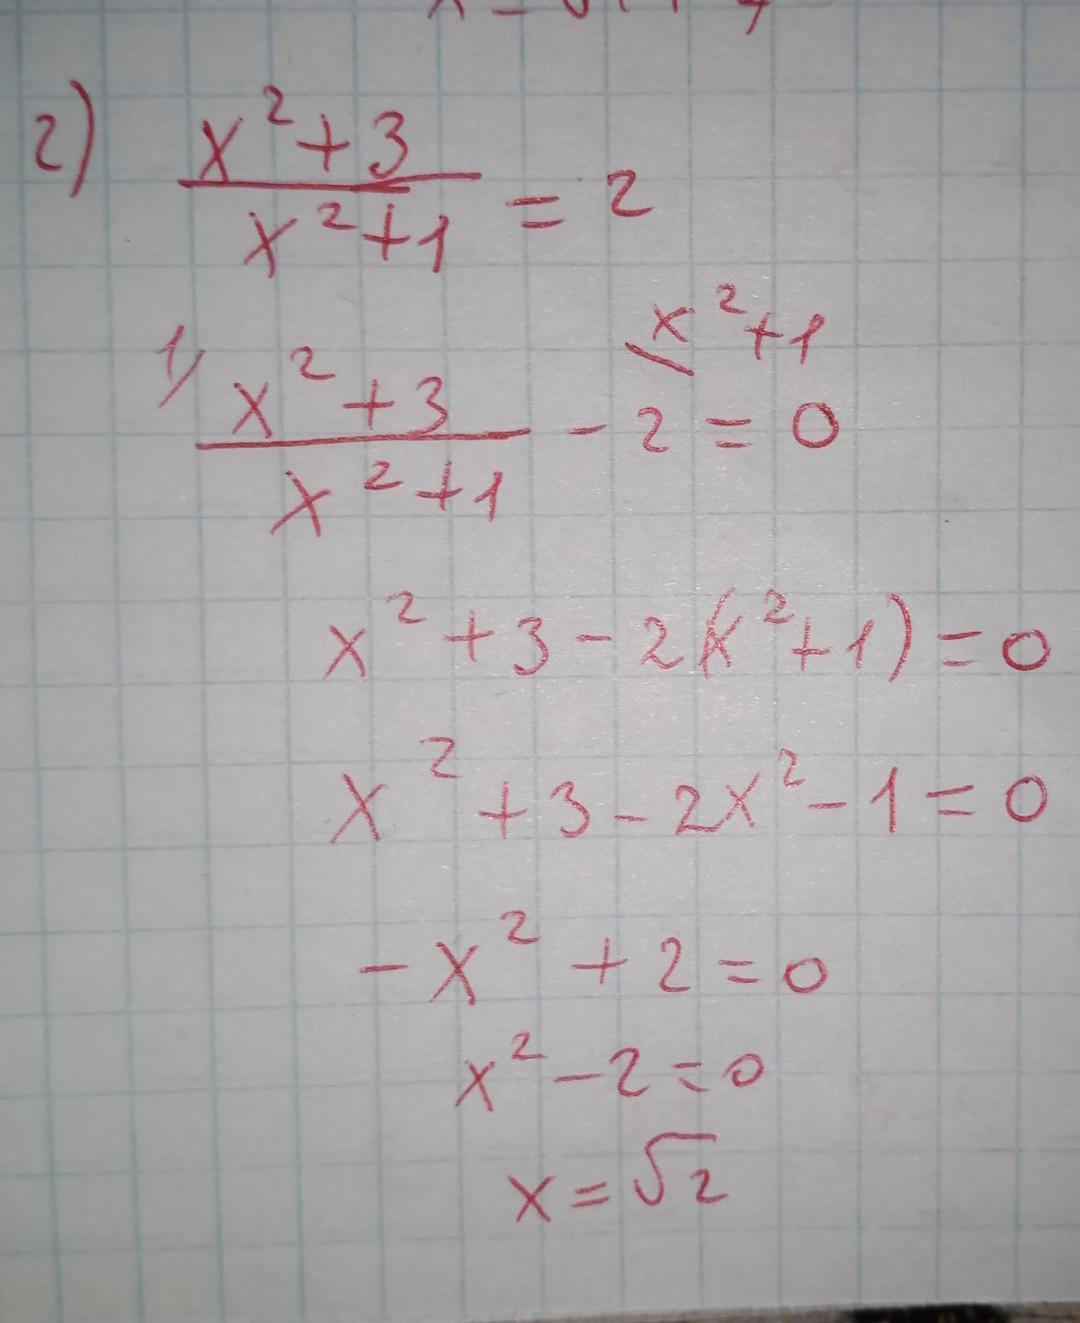 2) (x²+3)/(x²+1) = 2
1) (x²+3)/(x²+1) - 2 \x²+1 = 0
x² + 3 - 2(x²+1) = 0
x² + 3 - 2x² - 1 = 0
-x² + 2 = 0
x² - 2 = 0
x = √2